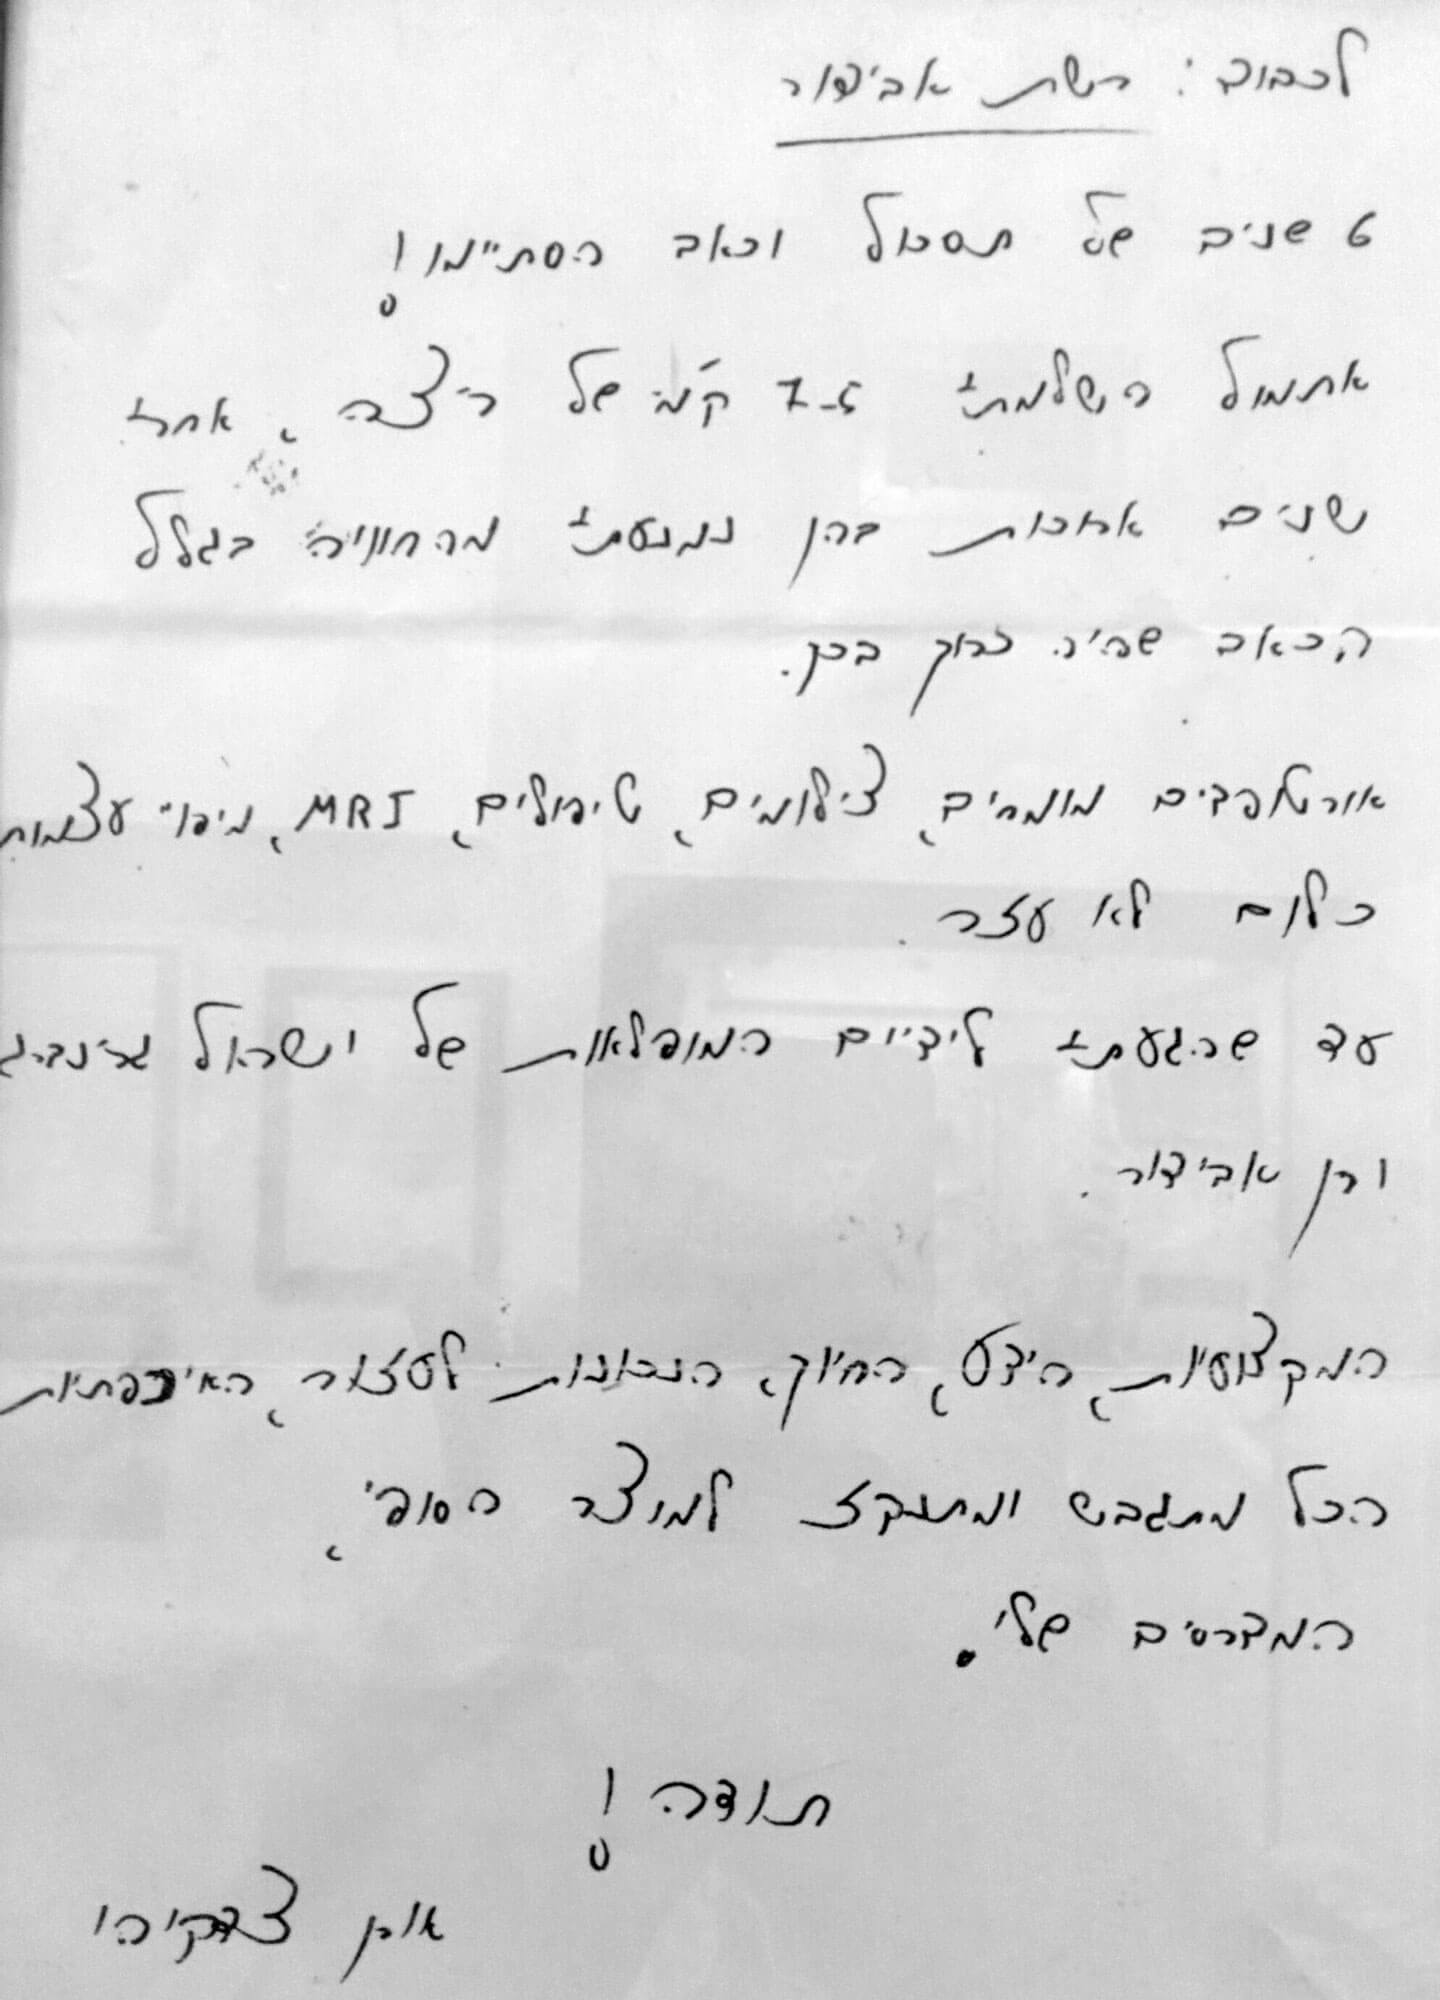 לכבוד: רשת אבידור
6 שנים של תסכול וכאב הסתיימו!
אתמול השלמתי 7.5 ק"מ של ריצה, אחרי
שנים ארוכות בהן נמנעתי מהחוויה בגלל
הכאב שהיה כרוך בכך.
אורטופדים מומחים, צילומים, טיפולים, MRI, מיפוי עצמות
כלום לא עזר.
עד שהגעתי לידיים המופלאות של ישראל גרינברג
ורן אבידור.
המקצועיות, הידע, החיוך, הנכונות לעזור, האיכפתיות
הכל מתגבש ומתנקז למוצר הסופי,
המדרסים שלי.
תודה!
צדקיהו